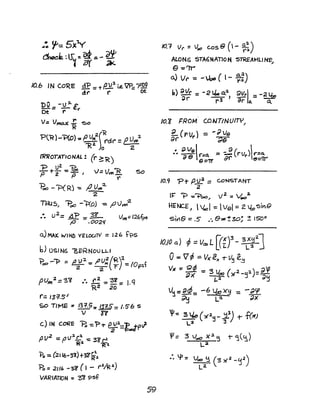 ∴ Ψ = 5x²Y
Check: U = ∂Φ/∂x = - ∂Ψ/∂x
10.6 IN CORE dp/dr = + ρU²/r
DU/Dt = - U²/r er
V = Vmax r/R SO
P(R)-P(0) = ρUm²/R² ∫ rdr = ρUm²/2
IRROTATIONAL: (r ≥ R)
P/ρ + U²/2 = P∞/ρ , V = Um R/r SO
P∞ - P(R) = ρUm²/2
THUS, P∞ - P(0) = ρUm²
∴ U² = ΔP/ρ = 38/.0024 Um = 126 fps
a) MAX WIND VELOCITY = 126 fps
b) USING BERNOULLI
P∞ - P = ρU²/2 = ρU²/2 (R/r)² = 10 psf
ρUm² = 38 ∴ r²/R² = 38/20 = 1.9
r = 137.5'
SO TIME = 137.5/V = 137.5/88 = 1.56 s
c) IN CORE P₀ = P + ρU²/2 = P + ρV²
ρV² = ρV² r²/R² = 38 r²/R²
P₀ = (2116-38) + 38 r²/R²
P₀ = 2116 - 38 (1 - r²/R²)
VARIATION = 38 psf
10.7 Vr = V∞ cos θ (1 - a²/r²)
ALONG STAGNATION STREAMLINE,
θ = π
a) Vr = - U∞ (1 - a²/r²)
b) ∂Vr/∂r = - 2 U∞ a²/r³ , ∂Vr/∂r |a = - 2 U∞/a
10.8 FROM CONTINUITY,
∂/∂r (rVr) = - ∂Vθ/∂θ
∴ ∂Vθ/∂θ | r=a θ=π = - ∂/∂r (rVr) | r=a θ=π
10.9 P + ρU²/2 = CONSTANT
IF P = P∞, U² = U∞²
HENCE, |V∞| = |Vθ| = 2 U∞ sin θ
sin θ = .5 ∴ θ = ±30°, ± 150°
10.10 a) Φ = U∞ L [(x/L)³ - 3xy²/L³]
U = ∇Φ = Vx ex + Vy ey
Vx = ∂Φ/∂x = 3U∞/L² (x² - y²) = ∂Ψ/∂y
Vy = ∂Φ/∂y = - 6 U∞ xy/L² = - ∂Ψ/∂x
Ψ = 3U∞/L² (x²y - y³/3) + f(x)
Ψ = 3 U∞ x² y/L² + g(y)
∴ Ψ = U∞ y/L² (3x² - y²)
59